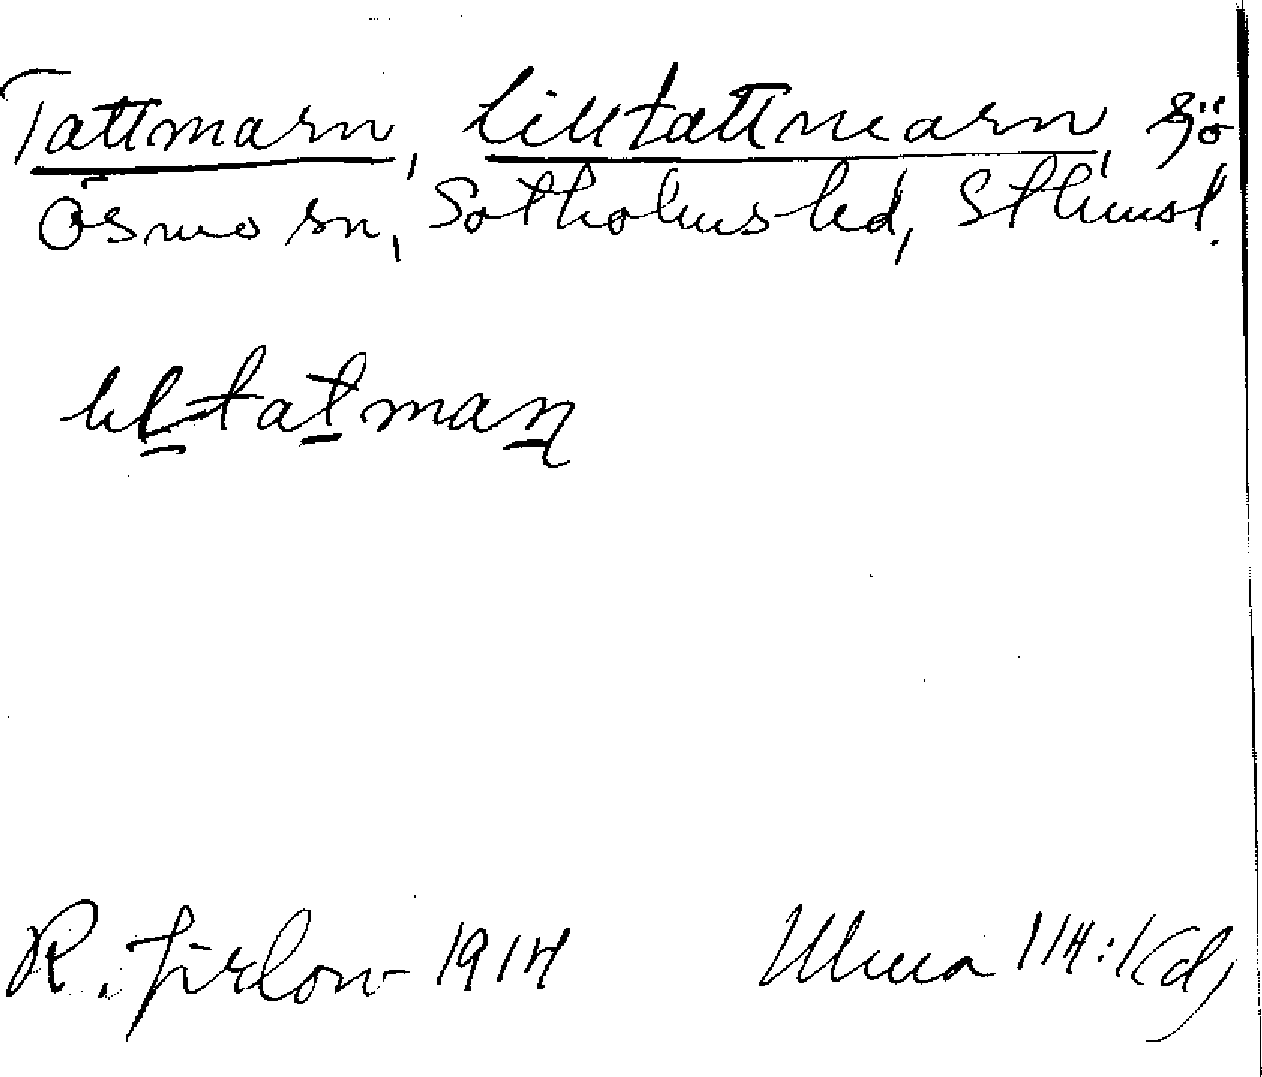 Tattmarn, Lilltattmarn, sjö
Ösmo sn, Sotholms hd, Sthmsl.
lıltatmaɳ
R. Jirlow 1914